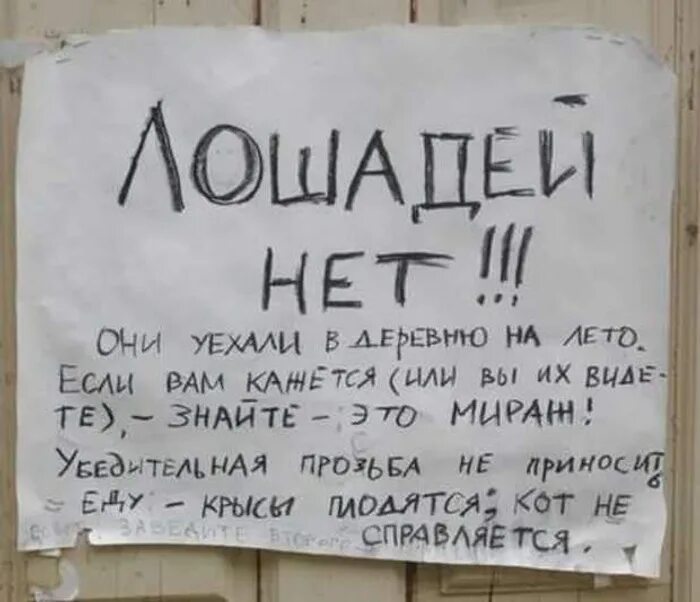 ЛОШАДЕЙ
НЕТ!!!
ОНИ УЕХАЛИ В ДЕРЕВНЮ НА ЛЕТО.
ЕСЛИ ВАМ КАЖЕТСЯ (ИЛИ ВЫ ИХ ВИДЕ-
ТЕ), – ЗНАЙТЕ – ЭТО МИРАЖ!
УБЕДИТЕЛЬНАЯ ПРОЗЬБА НЕ ПРИНОСИТЬ
ЕДУ – КРЫСЫ ПЛОДЯТСЯ; КОТ НЕ
ЗАВЕДИТЕ ВТОРОГО СПРАВЛЯЕТСЯ.